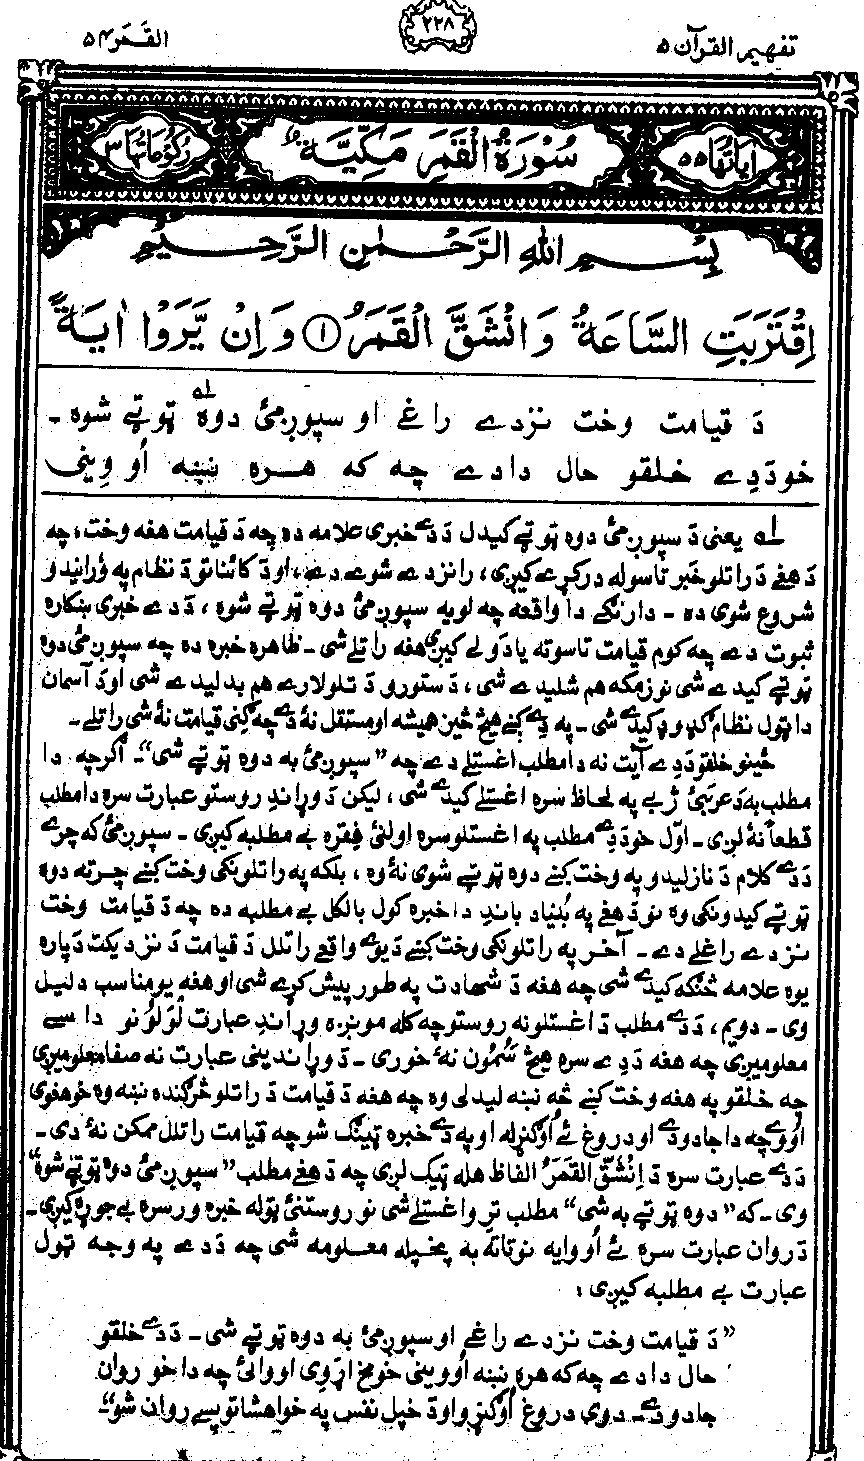 تفهيم القرآن ۵
۲۲۸
القَمَر ۵۴
اٰیاتُهَا ۵۵
سُوْرَةُ الْقَمَرِ مَكِّيَّةٌ
رُكُوْعَاتُهَا ۳
بِسْمِ اللهِ الرَّحْمٰنِ الرَّحِيْمِ
اِقْتَرَبَتِ السَّاعَةُ وَانْشَقَّ الْقَمَرُ ۱ وَاِنْ يَّرَوْا اٰيَةً
دَ قیامت وخت نزدے راغے او سپوږمئ دوه ټوټے شوه ۔
خودَدِے خلقو حال دادے چه که هره نښه اُو وینی
له یعنی دَ سپوږمئ دوه ټوټے کیدل دَدے خبری علامه ده چه دَ قیامت هغه وخت، چه
دَهغے دَ راتلو خبر تاسو له درکړے کیږی، را نزدے شوے دے، او دَ کائناتو دَ نظام په وُرانیدو
شروع شوی ده ۔ دارنګے دا واقعه چه لویه سپوږمئ دوه ټوټے شوه، دَدے خبری ښکاره
ثبوت دے چه کوم قیامت تاسو ته یادولے کیږی هغه راتلے شی ۔ ظاهره خبره ده چه سپوږمئ دوه
ټوټے کیدے شی نو زمکه هم شلیدے شی، دَ ستورو دَ تلو لارے هم بدلیدے شی او دَ آسمان
دا ټول نظام ګډوډ کیدے شی ۔ په دے کښے هیڅ څیز همیشه او مستقل نهٔ دے چه ګنی قیامت نهٔ شی راتلے ۔
ځینو خلقو دَدِے آیت نه دا مطلب اغستلے دے چه ”سپوږمئ به دوه ټوټے شی“۔ اګرچه دا
مطلب به دَ عربئ ژبے په لحاظ سره اغستلے کیدے شی، لیکن دَ وړاندِ روستو عبارت سره دا مطلب
قطعاً نهٔ لری ۔ اوّل خو دَدے مطلب په اغستلو سره اولنئ فِقره بے مطلبه کیږی ۔ سپوږمئ که چرے
دَدے کلام دَ نازلیدو په وخت کښے دوه ټوټے شوی نهٔ وه، بلکه په راتلونکی وخت کښے چرته دوه
ټوټے کیدونکی وه نو دَهغے په بُنیاد باندِ دا خبره کول بالکل بے مطلبه ده چه دَ قیامت وخت
نزدے راغلے دے ۔ آخر په راتلونکی وخت کښے دَ یوے واقعے راتلل دَ قیامت دَ نزدیکت دَپاره
یوه علامه څنګه کیدے شی چه هغه دَ شهادت په طور پیش کړے شی او هغه یو مناسب دلیل
وی ۔ دویم، دَدے مطلب دَ اغستلو نه روستو چه کله مونږه وړاندِ عبارت لَوَلوُ نو دا سے
معلومیږی چه هغه دَدِے سره هیڅ سُمُون نهٔ خوری ۔ دَ وړاندینی عبارت نه صفا معلومیږی
چه خلقو په هغه وخت کښے څه نښه لیدلی وه چه هغه دَ قیامت دَ راتلو څرګنده نښه وه خو هغوی
اُووے چه دا جادو دے او دروغ ئے اُوګنړل او په دے خبره ټینګ شو چه قیامت راتلل ممکن نهٔ دی ۔
دَدے عبارت سره دَ اِنْشَقَّ الْقَمَرُ الفاظ هله ټیک لری چه دَهغے مطلب ”سپوږمئ دوه ټوټے شوه“
وی ۔ که ”دوه ټوټے به شی“ مطلب ترِ واغستلے شی نو روستنئ ټوله خبره ورسره بے جوړه کیږی ۔
دَ روان عبارت سره ئے اُووایه نو تا ته به پخپله معلومه شی چه دَدے په وجه ټول
عبارت بے مطلبه کیږی :
”دَ قیامت وخت نزدے راغے او سپوږمئ به دوه ټوټے شی ۔ دَدے خلقو
حال دادے چه که هره نښه اُووینی خو مخ اړوی او وائی چه دا خو روان
جادو دے ۔ دوی دروغ اُوګنړو او دَ خپل نفس په خواهشاتو پسے روان شو“